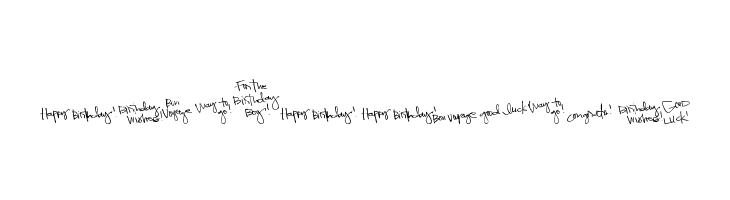 Happy Birthday!
Birthday wishes!
Bon Voyage
Way to go!
For the Birthday Boy!
Happy Birthday!
Happy Birthday!
Bon voyage
good luck
Way to go!
congrats!
Birthday wishes!
Good Luck!